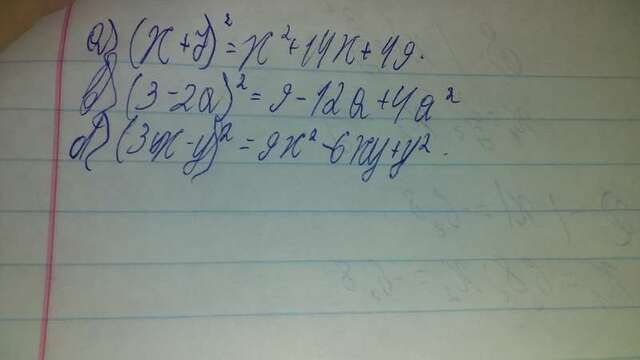 а) (x+7)² = x²+14x+49.
б) (3-2a)² = 9-12a+4a²
в) (3x-y)² = 9x²-6xy+y².